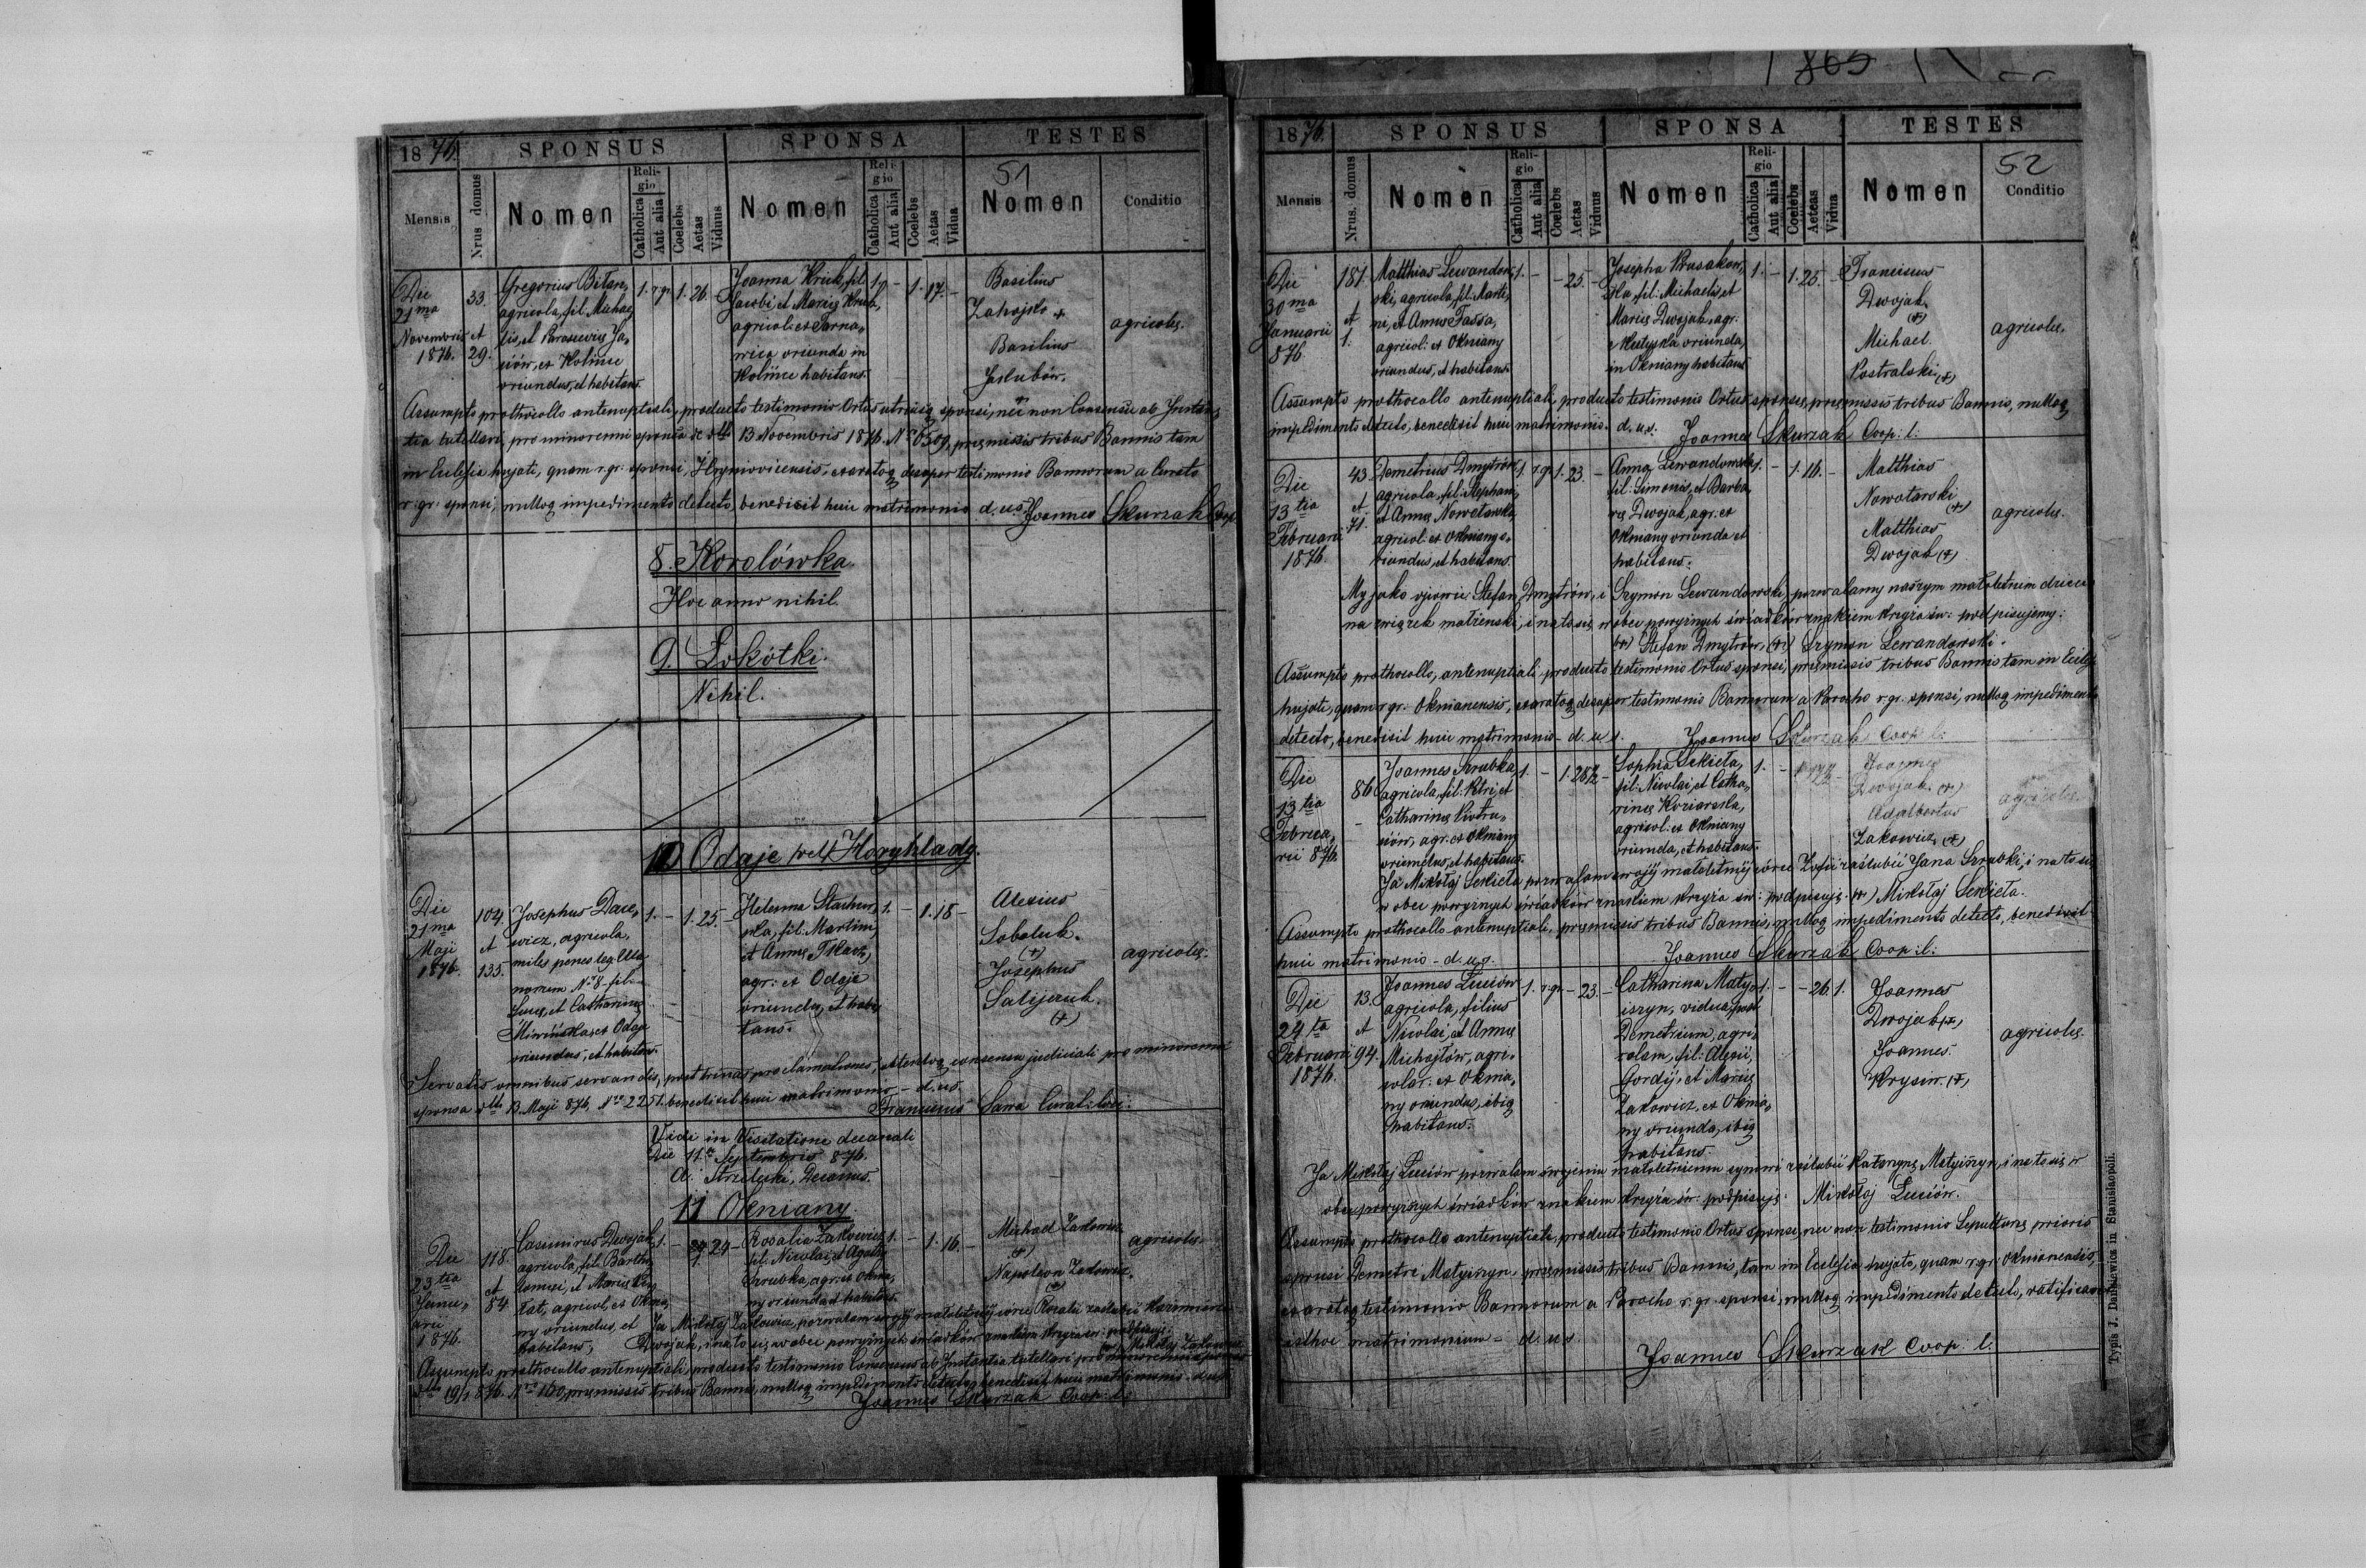 1876.
SPONSUS
SPONSA
TESTES
51
Mensis
Nrus domus
Nomen
Religio
Catholica
Aut alia
Coelebs
Aetas
Viduus
Nomen
Religio
Catholica
Aut alia
Coelebs
Aetas
Vidua
Nomen
Conditio
Die
21ma
Novembris
1876.
33.
et
29.
Gregorius Bitan,
agricola, fil. Michae
lis, et Parascevię Ja„
ciów, ex Kolińce
oriundus, et habitans.
1. r.gr. 1. 26. -
Joanna Kruk, fil.
Jacobi et Marię Kruk,
agricol: ex Tarna„
wica oriunda in
Kolińce habitans.
1. - 1. 17. -
Basilius
Zahajko +
Basilius
Jakubów.
agricolę.
Assumpto prothocollo antenuptiali, producto testimonio Ortus utriusq sponsi, nec non Consensu ab Instan„
tia tutellari pro minorenni sponsa de dtto 13 Novembris 1876. Nro 6309, pręmissis tribus Bannis tam
in Ecclesia hujate, quam r. gr. sponsi, Hryniovicensis, exaratoq desuper testimonio Bannorum a Curato
r. gr. sponsi, nulloq impedimento detecto, benedixit huic matrimonio d. u. s. Joannes Skurzak Coop
8. Korolówka.
Hoc anno nihil.
9. Łokótki.
Nihil.
10 Odaje (vel) Horyhlady.
Die
21ma
Maji
1876.
104.
et
135.
Josephus Dace„
wicz, agricola,
miles penes leg. Ula
norum Nro 8 - fil:
Lucę, et Catharinę
Miwińska, ex Odaje
oriundus, et habitans.
1. - 1. 25. -
Helenna Stachur„
ska, fil. Martini,
et Annę Tkacz,
agr: ex Odaje
oriunda, et habi
tans.
1. - 1. 18 -
Alexius
Soboluk.
(+)
Josephus
Salijczuk.
(+)
agricolę.
Servatis omnibus servandis, post trinas proclamationes, attentoq consensu judiciali pro minorenni
sponsa dtto 13 Maji 876, Nro 2251. benedixit huic matrimonio - d. u. s.
Franciscus Sawa Curat. loci.
Vidi in Visitatione decanali
Die 11a Septembris 876.
A. Strzelecki, Decanus.
11 Okniany.
Die
23tia
Janu„
arii
1876.
118.
et
84
Casimirus Dwojak,
agricola, fil. Bartho„
lomei, et Marię
agricol. ex Oknia„
ny oriundus, et
habitans,
1. - 1. 24 -
Rosalia Zakowicz,
fil. Nicolai, et Agathę
Szrubka, agr. ex Oknia„
ny oriunda et habitans.
1. - 1. 16. -
Michael Zakowicz
(+)
Napoleon Zakowicz.
(+)
agricolę.
Ja Mikołaj Zakowicz, pozwalam swojéj małoletniéj córce Rozalii zaślubić Kazimierza
Dwojak, i na to się w obec powyższych świadków znakiem krzyża św: podpisuję:
(+) Mikołaj Zakowicz
Assumpto prothocollo antenuptiali, producto testimonio Consensus ab Instantia tutellari pro minorenni sponsa
dtto 19/1 876. Nro 160, pręmissis tribus Bannis, nulloq impedimento detecto, benedixit huic matrimonio - d. u. s.
Joannes Skurzak Coop: l.
1865
1876.
SPONSUS
SPONSA
TESTES
52
Mensis
Nrus. domus
Nomen
Religio
Catholica
Aut alia
Coelebs
Aetas
Viduus
Nomen
Religio
Catholica
Aut alia
Coelebs
Aeteas
Vidua
Nomen
Conditio
Die
30ma
Januarii
876
181.
et
1.
Matthias Lewandow„
ski, agricola, fil. Marti„
ni, et Annę Fassa,
agricol: ex Okniany
oriundus, et habitans.
1. - - 25. -
Josepha Prusakow„
ska, fil: Michaelis, et
Marię Dwojak, agr:
oriunda,
in Okniany habitans
1. - 1. 25. -
Franciscus
Dwojak.
(+)
Michael
Postralski. (+)
agricolę.
Assumpto prothocollo antenuptiali, producto testimonio Ortus sponsę, pręmissis tribus Bannis, nulloq
impedimento detecto, benedixit huic matrimonio. d. u. s: Joannes Skurzak Coop: l:
Die
13tia
Februarii
1876.
43.
et
71.
Demetrius Dmytrów,
agricola, fil. Stephani,
et Annę Nowotarska,
agricol: ex Okniany o„
riundus, et habitans.
1. r.gr. 1. 23. -
Anna Lewandowska,
fil: Simonis, et Barba„
rę Dwojak, agr. ex
Okniany oriunda et
habitans.
1. - 1. 16. -
Matthias
Nowotarski
(+)
Matthias
Dwojak (+)
agricolę.
My jako ojcowie: Stefan Dmytrów, i Szymon Lewandowski, pozwalamy naszym małoletnim dzieciom
na związek małżeński, i na to się w obec powyższych świadków znakiem krzyża św: podpisujemy:
(+) Stefan Dmytrów, (+) Szymon Lewandowski.
Assumpto prothocollo, antenuptiali, producto testimonio Ortus sponsi, pręmissis tribus Bannis tam in Eccles.
hujate, quam r. gr. Oknianensis, exaratoq desuper testimonio Bannorum a Parocho r. gr. sponsi, nulloq impedimento
detecto, benedixit huic matrimonio - d. u s. Joannes Skurzak Coop: l:
Die
13tia
Februa„
rii 876.
86
Joannes Szrubka,
agricola, fil: Petri, et
Catharinę Piotru„
ciów, agr. ex Okniany
oriundus, et habitans.
1. - 1. 28½ -
Sophia Sekieta,
fil: Nicolai, et Catha„
rinę Koziarska,
agricol: ex Okniany
oriunda, et habitans.
1. - 1. 17½ -
Joannes
Dwojak. (+)
Adalbertus
Zakowicz. (+)
agricolę.
Ja Mikołaj Sekieta pozwalam swojéj małoletniéj córce Zofii zaślubić Jana Szrubki, i na to się
w obec powyższych świadków znakiem krzyża św: podpisuję. (+) Mikołaj Sekieta.
Assumpto prothocollo antenuptiali, pręmissis tribus Bannis, nulloq impedimento detecto, benedixit
huic matrimonio - d. u. s. Joannes Skurzak Coop: l:
Die
24ta
Februarii
1876.
13.
et
94.
Joannes Luciów
agricola, filius
Nicolai, et Annę
Michajlów, agri„
colar: ex Oknia„
ny oriundus, ibiq
habitans.
1. r.gr. - 23. -
Catharina Maty„
iszyn, vidua, post
Demetrium, agri„
colam, fil: Alexii,
Gordij, et Marię
Zakowicz, ex Oknia„
ny oriunda, ibiq
habitans.
1. - - 26. 1.
Joannes
Dwojak (+)
Joannes
Krysin. (+)
agricolę.
Ja Mikołaj Luciów pozwalam swojemu małoletniemu synowi zaślubić Katarzynę Matyiszyn, i na to się w
obec powyższych świadków znakiem krzyża św: podpisuję: Mikołaj Luciów.
Assumpto prothocollo antenuptiali, producto testimonio Ortus sponsę, nec non testimonio Sepulturę prioris
sponsi Demetri Matyiszyn, pręmissis tribus Bannis, tam in Ecclesia hujate, quam r. gr. Oknianensis,
exaratoq testimonio Bannorum a Parocho r. gr. sponsi, nulloq impedimento detecto, ratificavit
esthoc matrimonium - d. u s.
Joannes Skurzak Coop. l.
Typis J. Dankiewicz in Stanislaopoli.